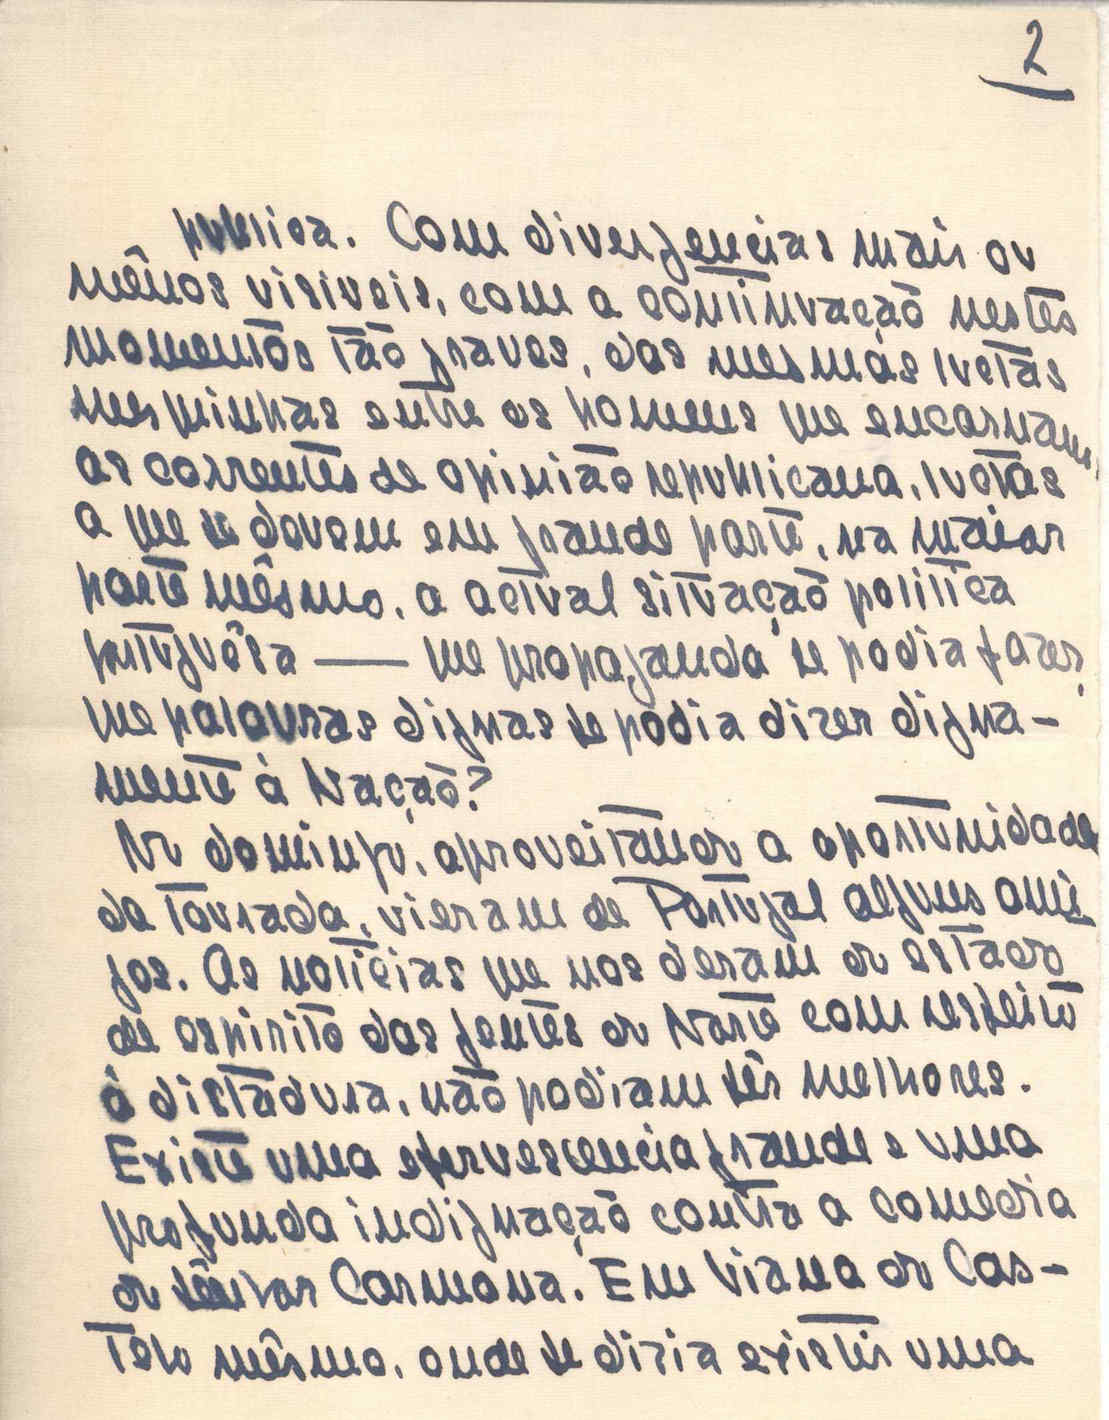 2
publica. Com divergencias mais ou
mênos visiveis, com a continuação nestes
momentos tão graves, das mesmas luctas
mesquinhas entre os homens que encarnam,
as correntes de opinião republicana, luctas
a que se devem em grande parte, na maior
parte mêsmo, a actual situação politica
portuguêsa — que propaganda se podia fazer,
que palavras dignas se podia dizer digna-
mente à Nação?
No domingo, aproveitando a oportunidade
da tourada, vieram de Portugal alguns ami-
gos. As noticias que nos deram do estado
de espirito das gentes do Norte com respeito
à dictadura, não podiam sêr melhores.
Existe uma efervescencia grande e uma
profunda indignação contra a comedia
do senhor Carmona. Em Viana do Cas-
telo mêsmo, onde se diria existir uma